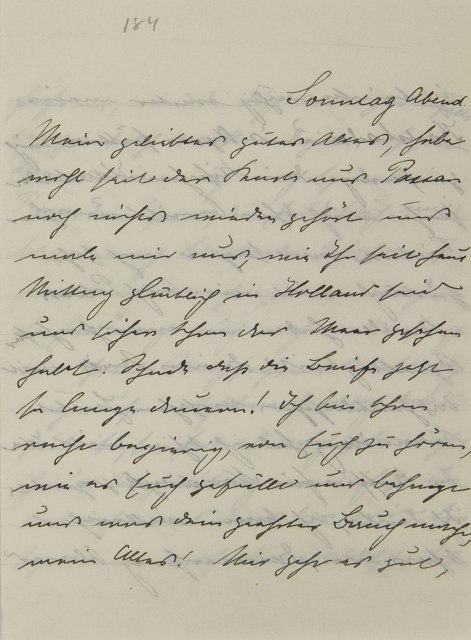 184
Sonntag Abend.
Mein geliebter guter Alter, habe
nicht seit der Karte aus Passau
noch nichts wieder gehört und
male mir aus, wie Ihr seit heut
Mittag glücklich in Holland seid
und sicher schon das Meer gesehen
habt. Schade daß die Briefe jetzt
so lange dauern! Ich bin schon
recht begierig, von Euch zu hören,
wie es Euch gefällt und behagt
und was dein geehrter Bauch macht,
mein Alter! Mir geht es gut,